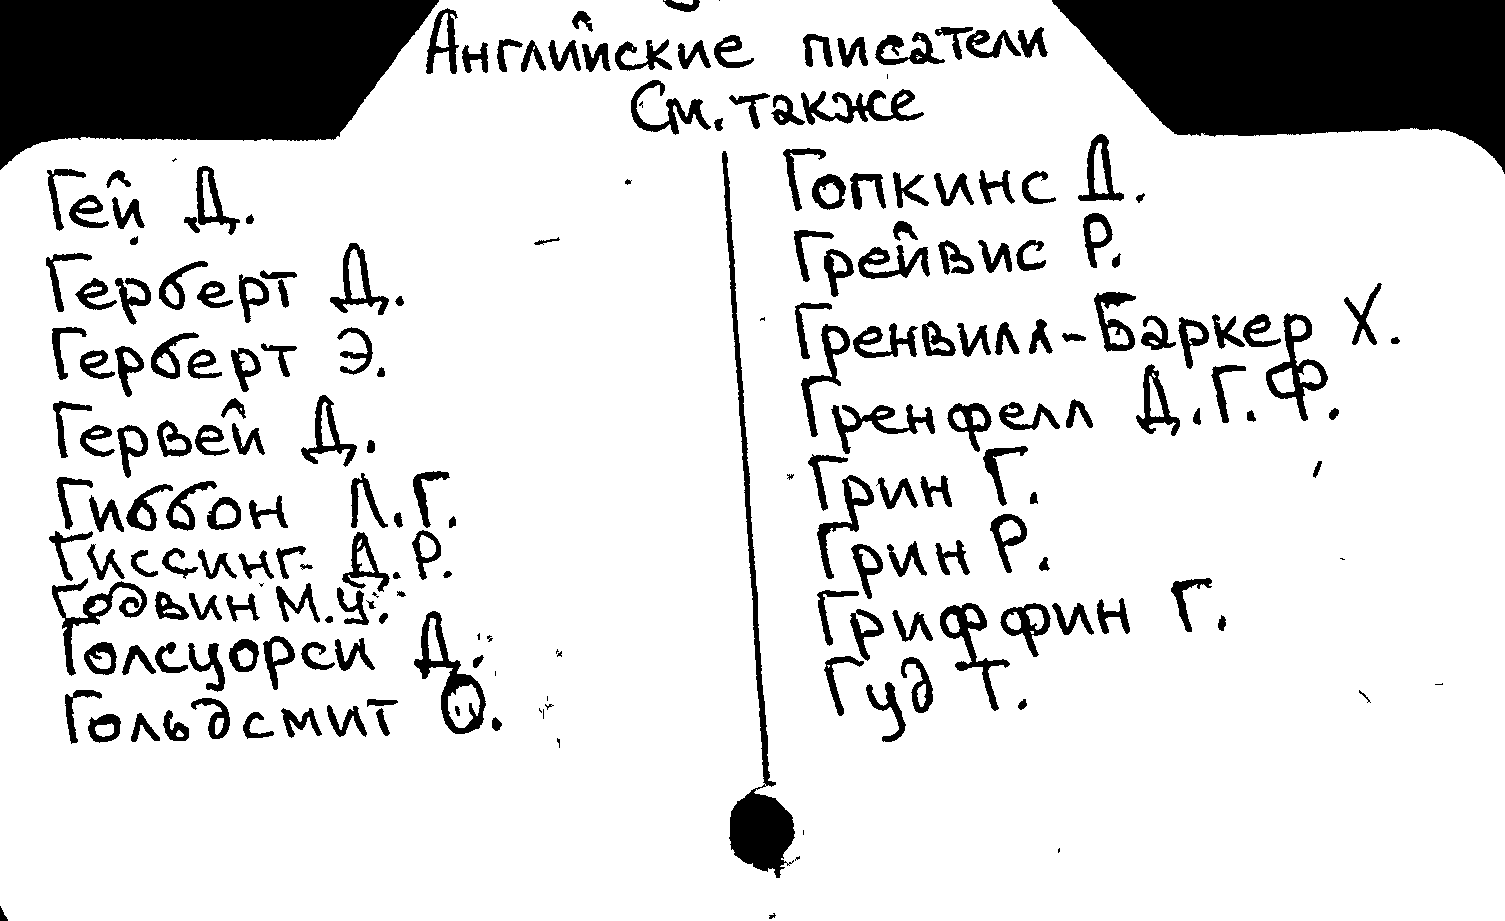 Английские писатели
См. также
Гей Д.
Герберт Д.
Герберт Э.
Гервей Д.
Гиббон Л.Г.
Гиссинг Д.Р.
Годвин М.У.
Голсуорси Д.
Гольдсмит О.
Гопкинс Д.
Грейвис Р.
Гренвилл-Баркер Х.
Гренфелл Д.Г.Ф.
Грин Г.
Грин Р.
Гриффин Г.
Гуд Т.